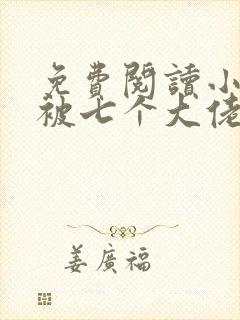 免費閱讀小
被七个大佬
姜廣福